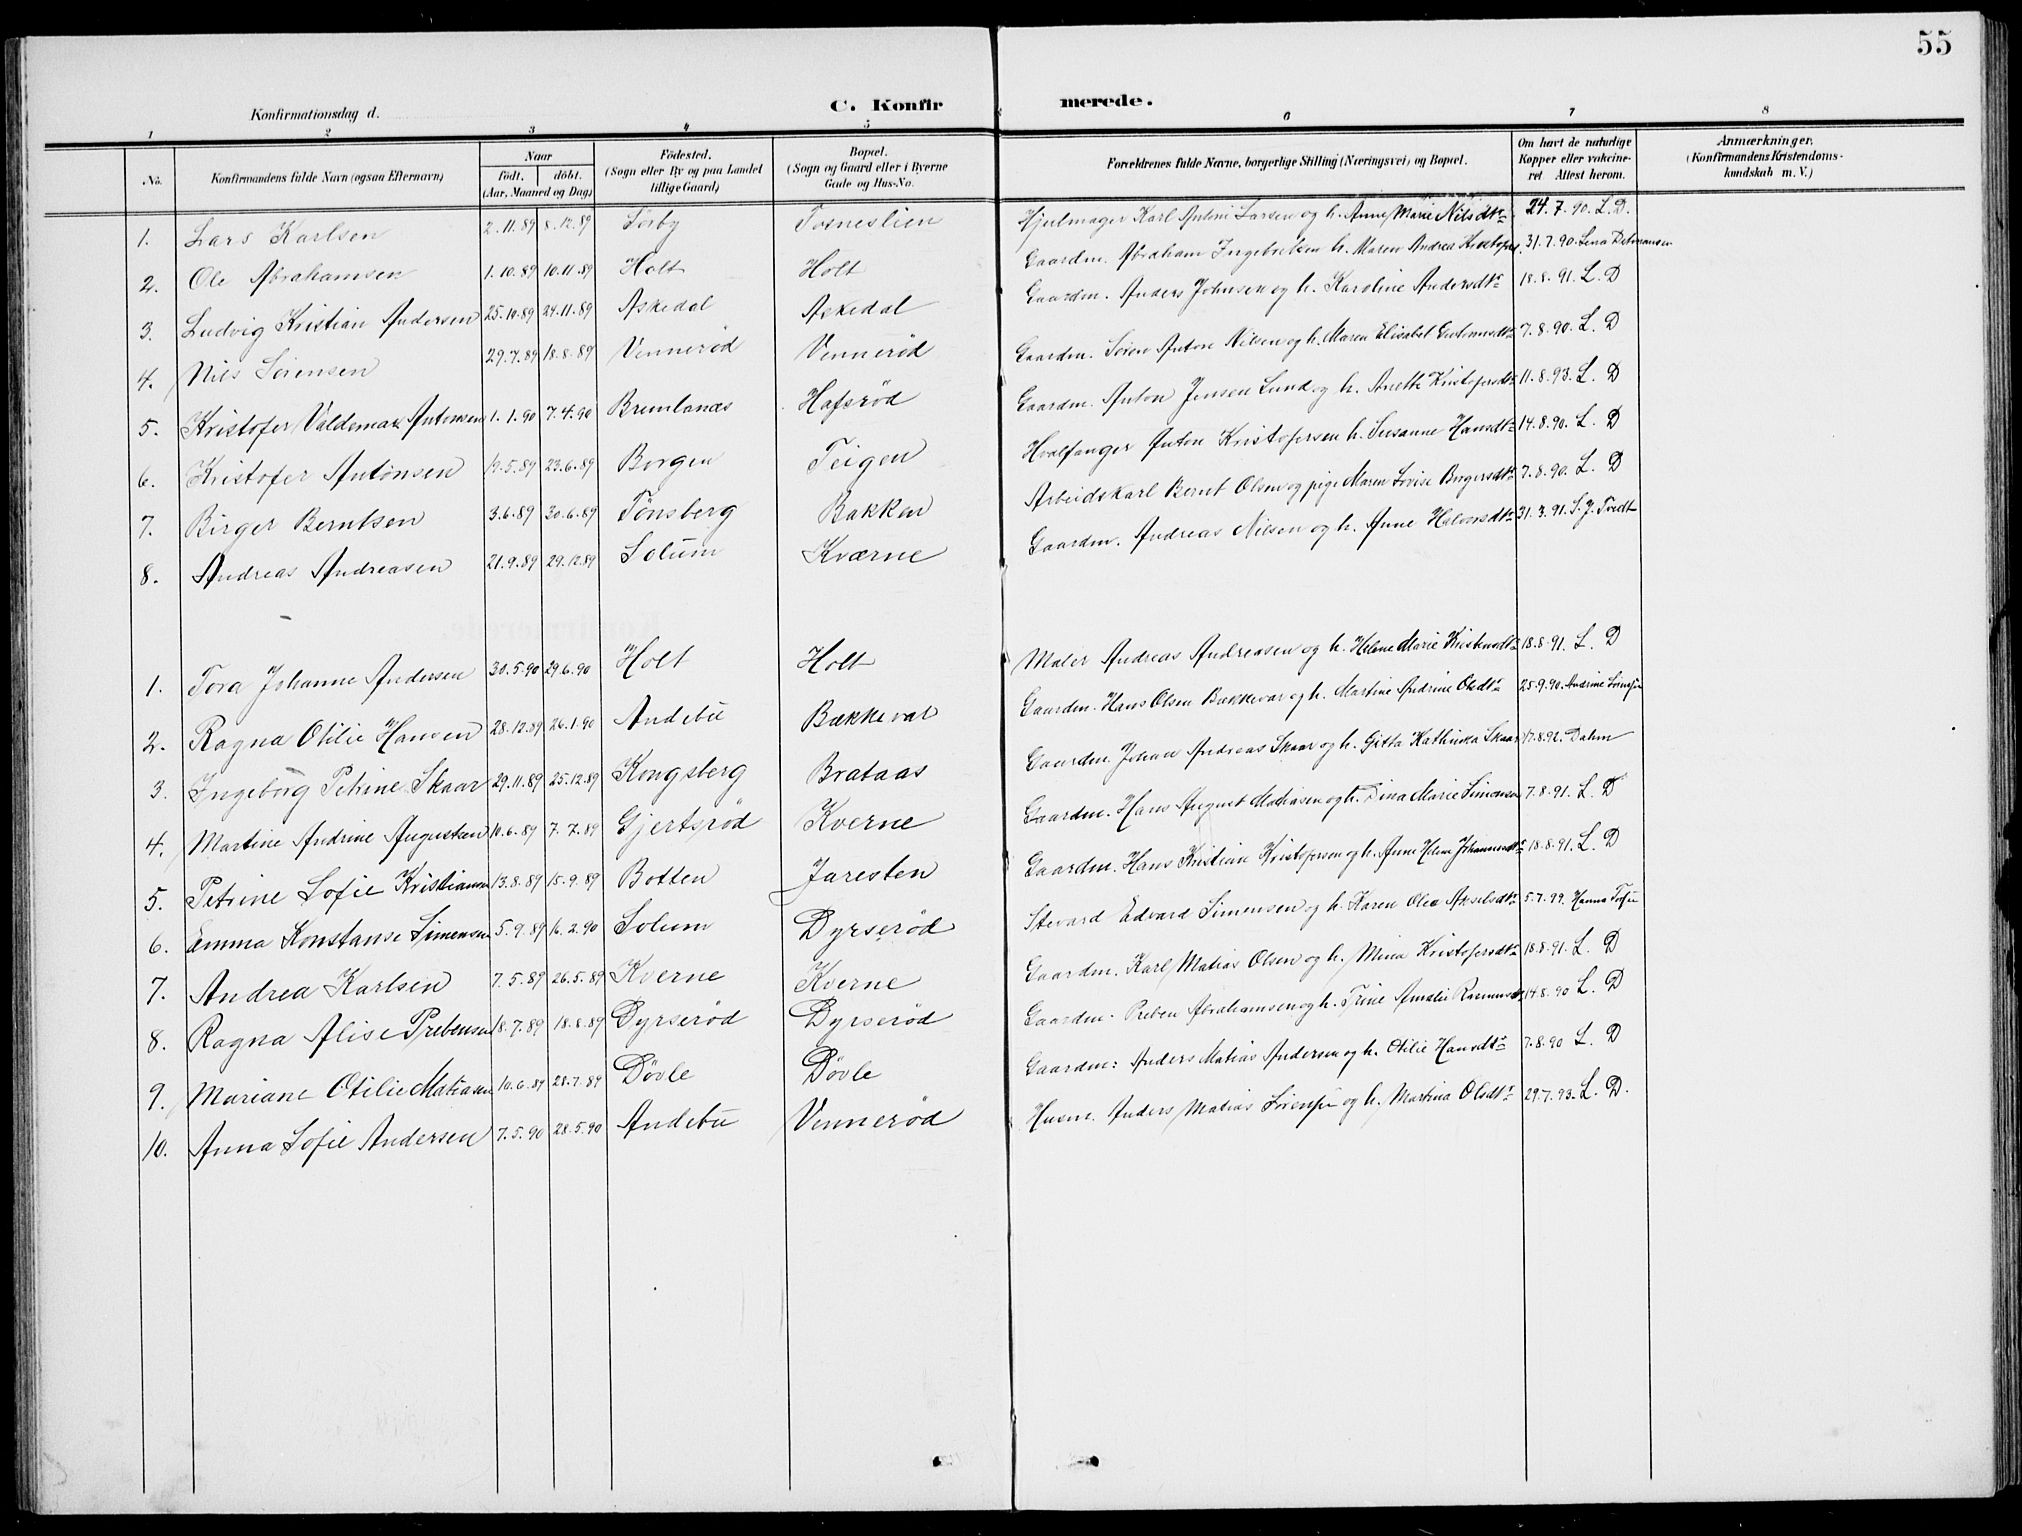 55
Konfirmationsdag d.
C. Konfirmerede.
1 2 3 4 5 6 7 8
No. Konfirmandens fulde Navn (ogsaa Efternavn) Naar födt. döbt. (Aar, Maaned og Dag) Födested. (Sogn eller By og paa Landet tillige Gaard) Bopæl. (Sogn og Gaard eller i Byerne Gade og Hus-No. Forældrenes fulde Navne, borgerlige Stilling (Næringsvei) og Bopæl. Om havt de naturlige Kopper eller vakcineret Attest herom. Anmærkninger. (Konfirmandens Kristendomskundskab m. V.)
1. Lars Karlsen 2.11.89 8.12.89 Sörby Tosneslien Hjulmager Karl Antini Larsen og h. Anne Marie Nilsdtr 24.7.90. L. D.
2. Ole Abrahamsen 1.10.89 10.11.89 Holt Holt Gaardm. Abraham Ingebretsen h. Maren Andrea 31.7.90. Lena
3. Ludvig Kristian Andersen 25.10.89 24.11.89 Askedal Askedal Gaardm. Anders Johnsen og h. Karoline Andersdtr 18.8.91. L. D
4. Nils Sörensen 29.7.89 18.8.89 Vennerød Vennerød Gaardm. Sören Anton Nilsen og h. Maren Elisabet 7.8.90. L. D
5. Kristofer Valdemar Antonsen 1.1.90 7.4.90 Brunlanæs Hafsrød Gaardm. Anton Jensen Lund og h. Anette Kristofersdtr 11.8.93. L. D
6. Kristofer Antonsen 19.5.89 23.6.89 Borgen Teigen Hvalfanger Anton Kristofersen h. Susanne Hansdtr 14.8.90. L. D
7. Birger Berntsen 3.6.89 30.6.89 Tönsberg Bakken Arbeidskarl Bernt Olsen og pige Maren Lovise Birgersdtr 7.8.90. L. D
8. Andreas Andreasen 21.9.89 29.12.89 Solum Kværne Gaardm. Andreas Nilsen og h. Anne Halvorsdtr 31.3.91. S. J. Tvedt
1. Tora Johanne Andersen 30.5.90 29.6.90 Holt Holt Maler Andreas Andreasen og h. Helene Marie Kristensdtr 18.8.91. L. D
2. Ragna Otilie Hansen 28.12.89 26.1.90 Andebu Bækkevar Gaardm. Hans Olsen Bækkevar og h. Martine Andrine Olsdtr 25.9.90. Andrine Sörensen
3. Ingeborg Petrine Skaar 29.11.89 25.12.89 Kongsberg Brataas Gaardm. Johan Andreas Skaar og h. Gitta Kathinka Skaar 17.8.92. Dahm
4. Martine Andrine Augustsen 10.6.89 7.7.89 Gjertsrød Kverne Gaardm. Hans August Matiasen og h. Dina Marie Simonsen 7.8.91. L. D
5. Petrine Sofie Kristiansen 13.8.89 15.9.89 Botten Jaresten Gaardm. Hans Kristian Kristofersen og h. Anne Helene Johannesdtr 18.8.91. L. D
6. Emma Konstanse Simensen 5.9.89 16.2.90 Solum Dyrserød Stevard Edvard Simensen og h. Karen Olea Akselsdtr 5.7.99. Hanna
7. Andrea Karlsen 7.5.89 26.5.89 Kverne Kverne Gaardm. Karl Matias Olsen og h. Mina Kristofersdtr 18.8.91. L. D
8. Ragna Alise Prebensen 18.7.89 18.8.89 Dyrserød Dyrserød Gaardm. Preben Abrahamsen og h. Trine Amalie Rasmusdtr 14.8.90 L. D
9. Mariane Otilie Matiasen 10.6.89 28.7.89 Døvle Døvle Gaardm: Anders Matias Andersen og h. Otilie Hansdtr 7.8.90 L. D
10. Anna Sofie Andersen 7.5.90 28.5.90 Andebu Vennerød Husm. Anders Matias Sörensen og h. Martina Olsdtr 29.7.93. L. D.